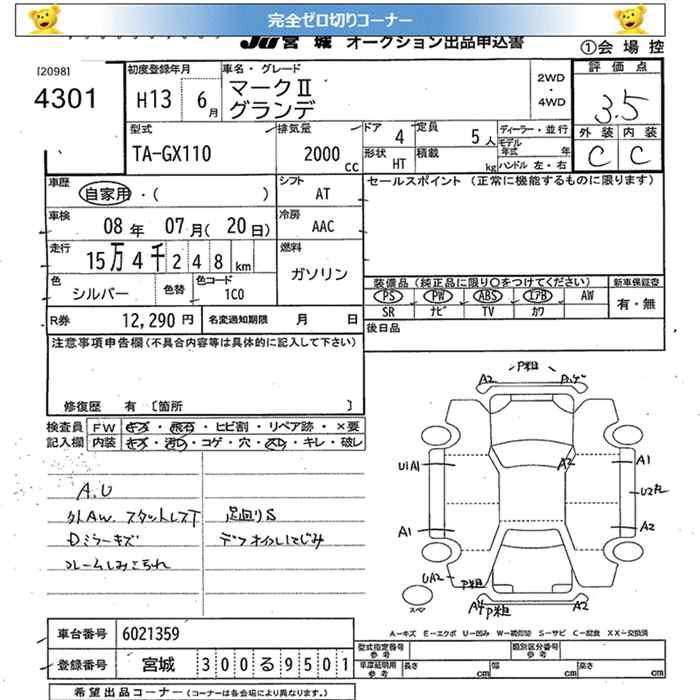 完全ゼロ切りコーナー
JU 宮城 オークション出品申込書
①会場控
[2098]
4301
初度登録年月
H13 6月
車名・グレード
マークⅡ
グランデ
2WD
・
4WD
評価点
3.5
外装 内装
C C
型式
TA-GX110
排気量
2000 cc
ドア 4
定員 5人
形状 HT
積載 kg
ディーラー・並行
モデル年式 年
ハンドル 左・右
車歴
自家用・( )
シフト
AT
セールスポイント (正常に機能するものに限ります)
車検
08年 07月(20日)
冷房
AAC
走行
15万4千248km
燃料
ガソリン
色
シルバー
色替
色コード
1C0
装備品(純正品に限り〇をつけてください)
PS PW ABS エアB AW
SR ナビ TV カワ
新車保証書
有・無
R券 12,290円
名変通知期限 月 日
後日品
注意事項申告欄(不具合内容等は具体的に記入して下さい)
修復歴 有 〔箇所 〕
検査員記入欄
FW キズ・飛石・ヒビ割・リペア跡・×要
内装 キズ・汚レ・コゲ・穴・スレ・キレ・破レ
A.U
外AW. スタットレスT
Dミラーキズ
フレームしみこみれ
足廻りS
デフオイルにじみ
P粗
A2
A2
U1A1
A1
U2丸
A1
A2
UA2
P粗
A4 P粗
A2
スペア
A-キズ E-エクボ U-凹み W-補修跡 S-サビ C-腐食 XX-交換済
車台番号 6021359
登録番号 宮城 300る9501
型式指定番号 参考
類別区分番号 参考
車庫証明用 参考
長さ cm
幅 cm
高さ cm
希望出品コーナー(コーナーは各会場により異なります。)